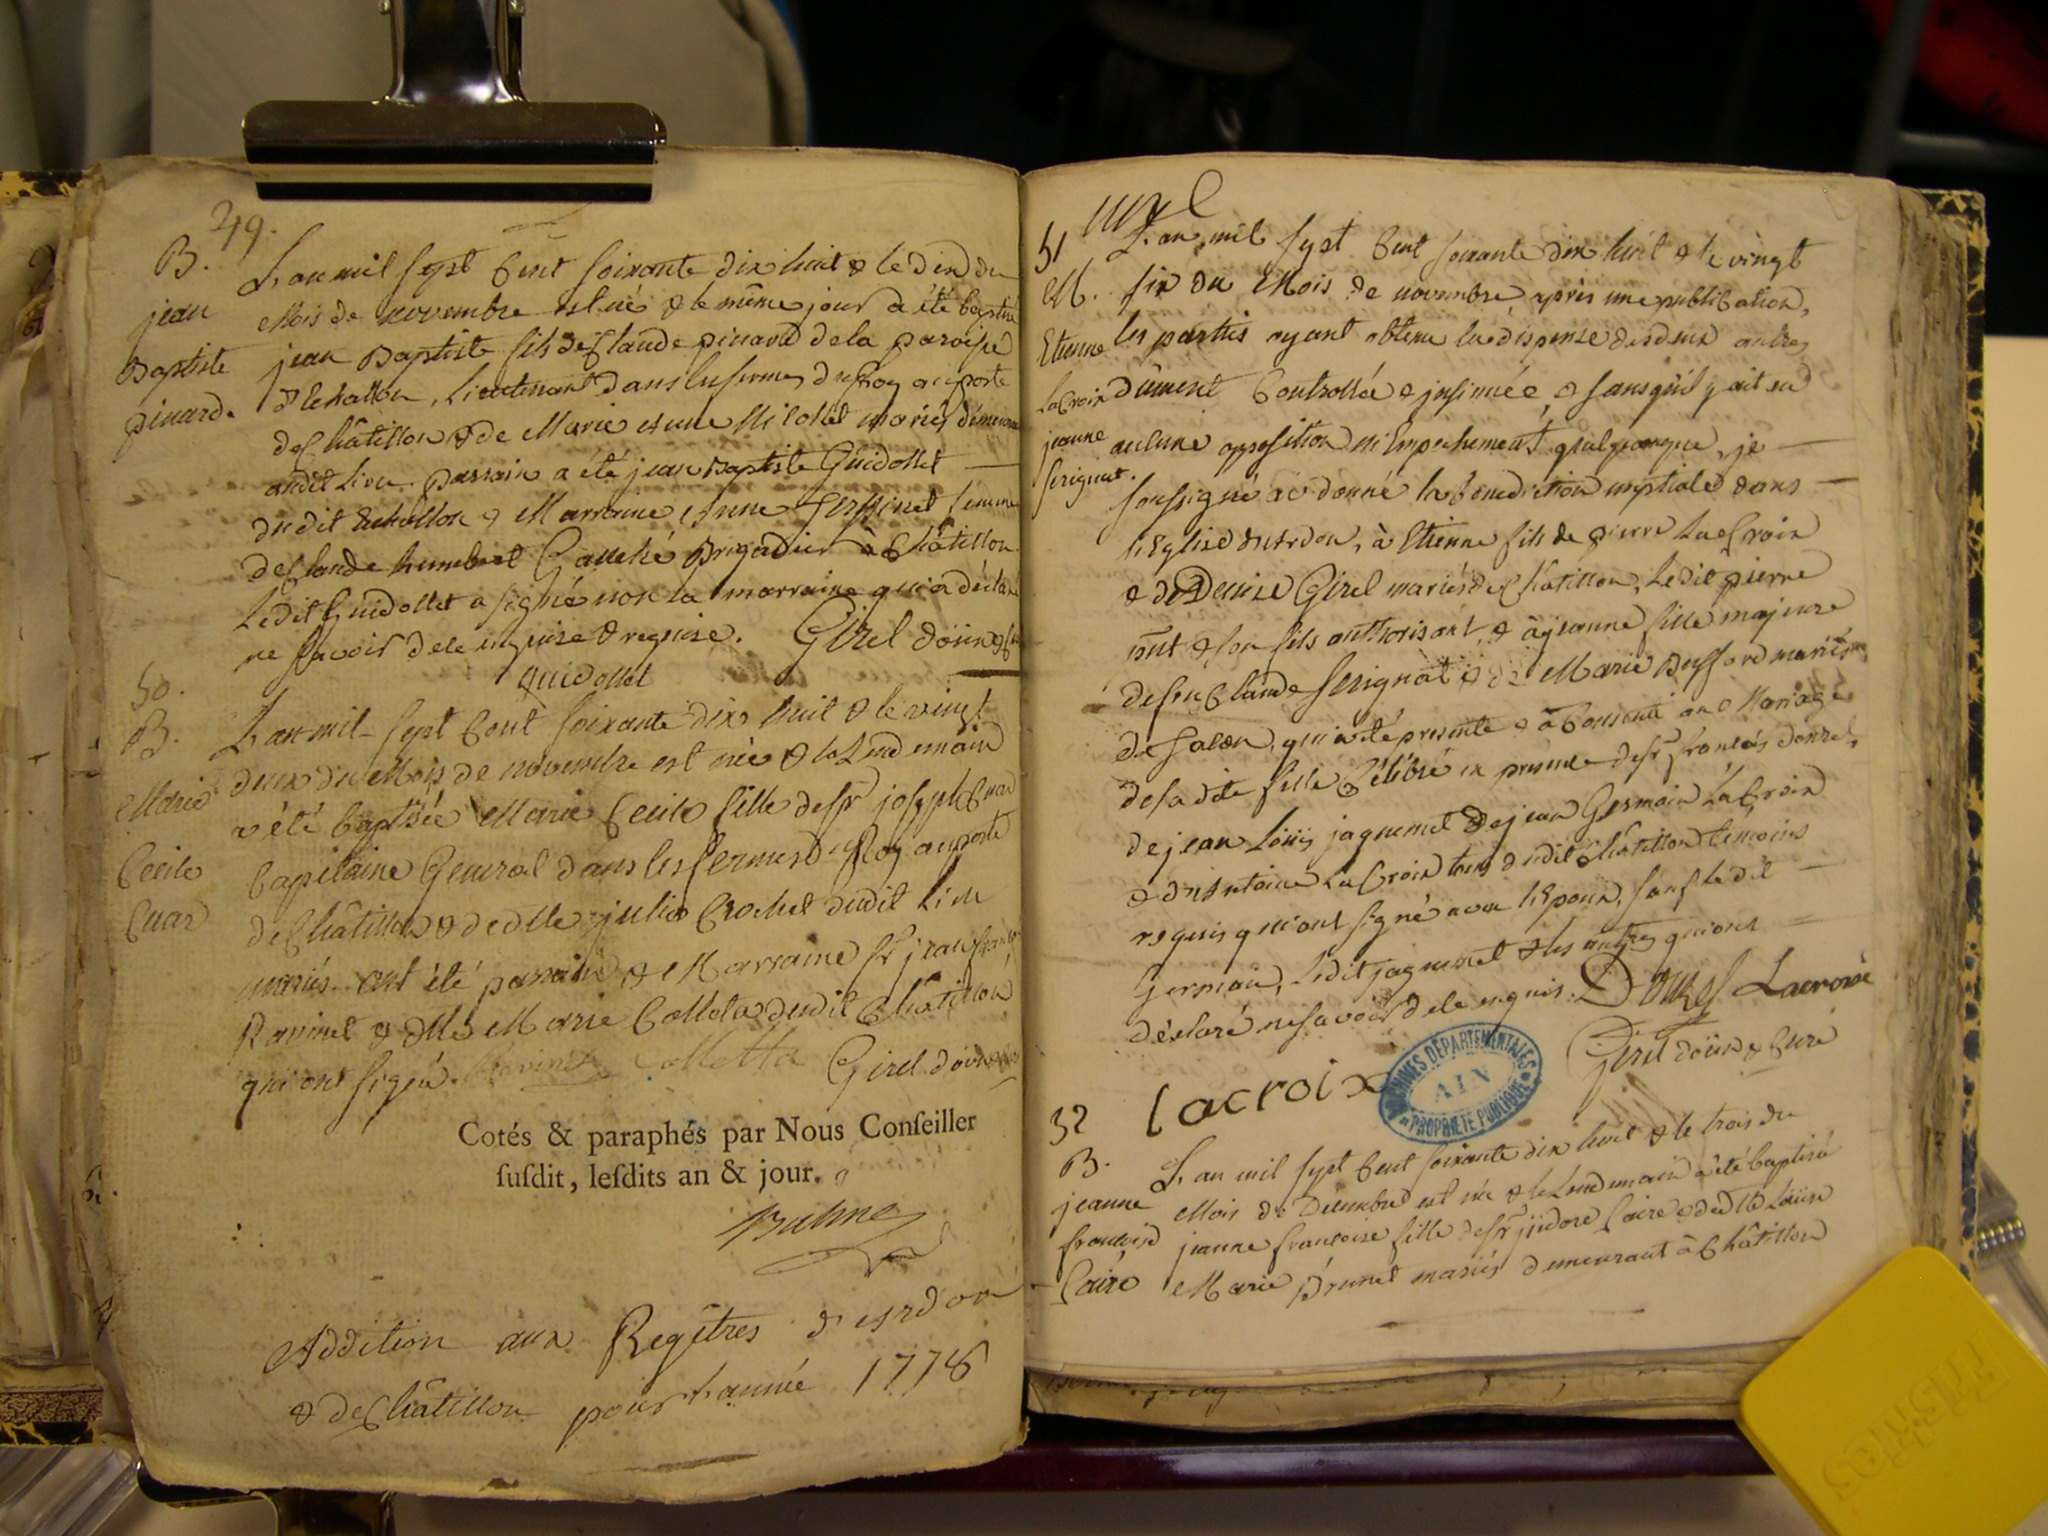 49.
B.
jean
Baptiste
pinard.
L'an mil sept cent soixante dix huit & le dix du
Mois de novembre est né & le même jour a été baptisé
jean Baptiste fils de Claude pinard de la paroisse
d'Echallon, Lieutenant dans les fermes du Roy au poste
de Châtillon & de Marie mariés demeurant
audit Lieu. parrain a été jean Baptiste Guidollet
dudit Echallon & Marraine femme
de Claude humbert Brigadier à Châtillon
Ledit Guidollet a signé non la marraine qui a déclaré
ne savoir de ce enquise & requise. Girel
Guidollet
50.
B.
Marie
Cecile
Cuaz
L'an mil sept cent soixante dix huit & le vingt
deux du Mois de novembre est née & le Lendemain
a été baptisée Marie Cecile fille de sr joseph Cuaz
Capitaine General dans les fermes du Roy au poste
de Châtillon & de dlle julie Crochet dudit Lieu
mariés. ont été parrain & Marraine sr jean
Ravinet & dlle Marie Colleta dudit Châtillon
qui ont signé. Ravinet Colletta Girel
Cotés & paraphés par Nous Conſeiller
ſuſdit, leſdits an & jour.
Addition aux Regîtres d'Ardon
& de Châtillon pour L'année 1778
51
M.
Etienne
LaCroix
jeanne
Serignat.
L'an mil sept cent soixante dix huit & le vingt
six du Mois de novembre après une publication,
les parties ayant obtenu la dispense des deux autres
dûment Controllée & insinuée & sans qu'il y ait eu
aucune opposition ni Empechement quelquonque, je
soussigné ai donné la benediction nuptiale dans
L'Eglise d'Ardon, à Etienne fils de pierre La Croix
& de Denise Girel mariés de Châtillon, Ledit pierre
& son fils authorisant, & à jeanne fille majeure
de feu Claude Serignat & de Marie Buffard mariés
de , qui a été presente & a Consenti au Mariage
de sa dite fille Célébré en presence de sr françois Donzel,
de jean Louis jagueniet de jean Germain LaCroix
& d'Antoine LaCroix tous dudit Châtillon témoins
requis qui ont signé avec L'Epoux, sauf ledit
Germain, Ledit jagueniet & les autres qui ont
déclaré ne savoir de ce enquis. Donzel Lacroix
Girel curé
lacroix
ARCHIVES DÉPARTEMENTALES
AIN
PROPRIÉTÉ PUBLIQUE
52
B.
jeanne
françoise
Caire
L'an mil sept cent soixante dix huit & le trois du
Mois de Decembre est née & le Lendemain a été baptisée
jeanne françoise fille de sr isidore Caire & de dlle Loüise
Marie Brunet mariés demeurant à Châtillon